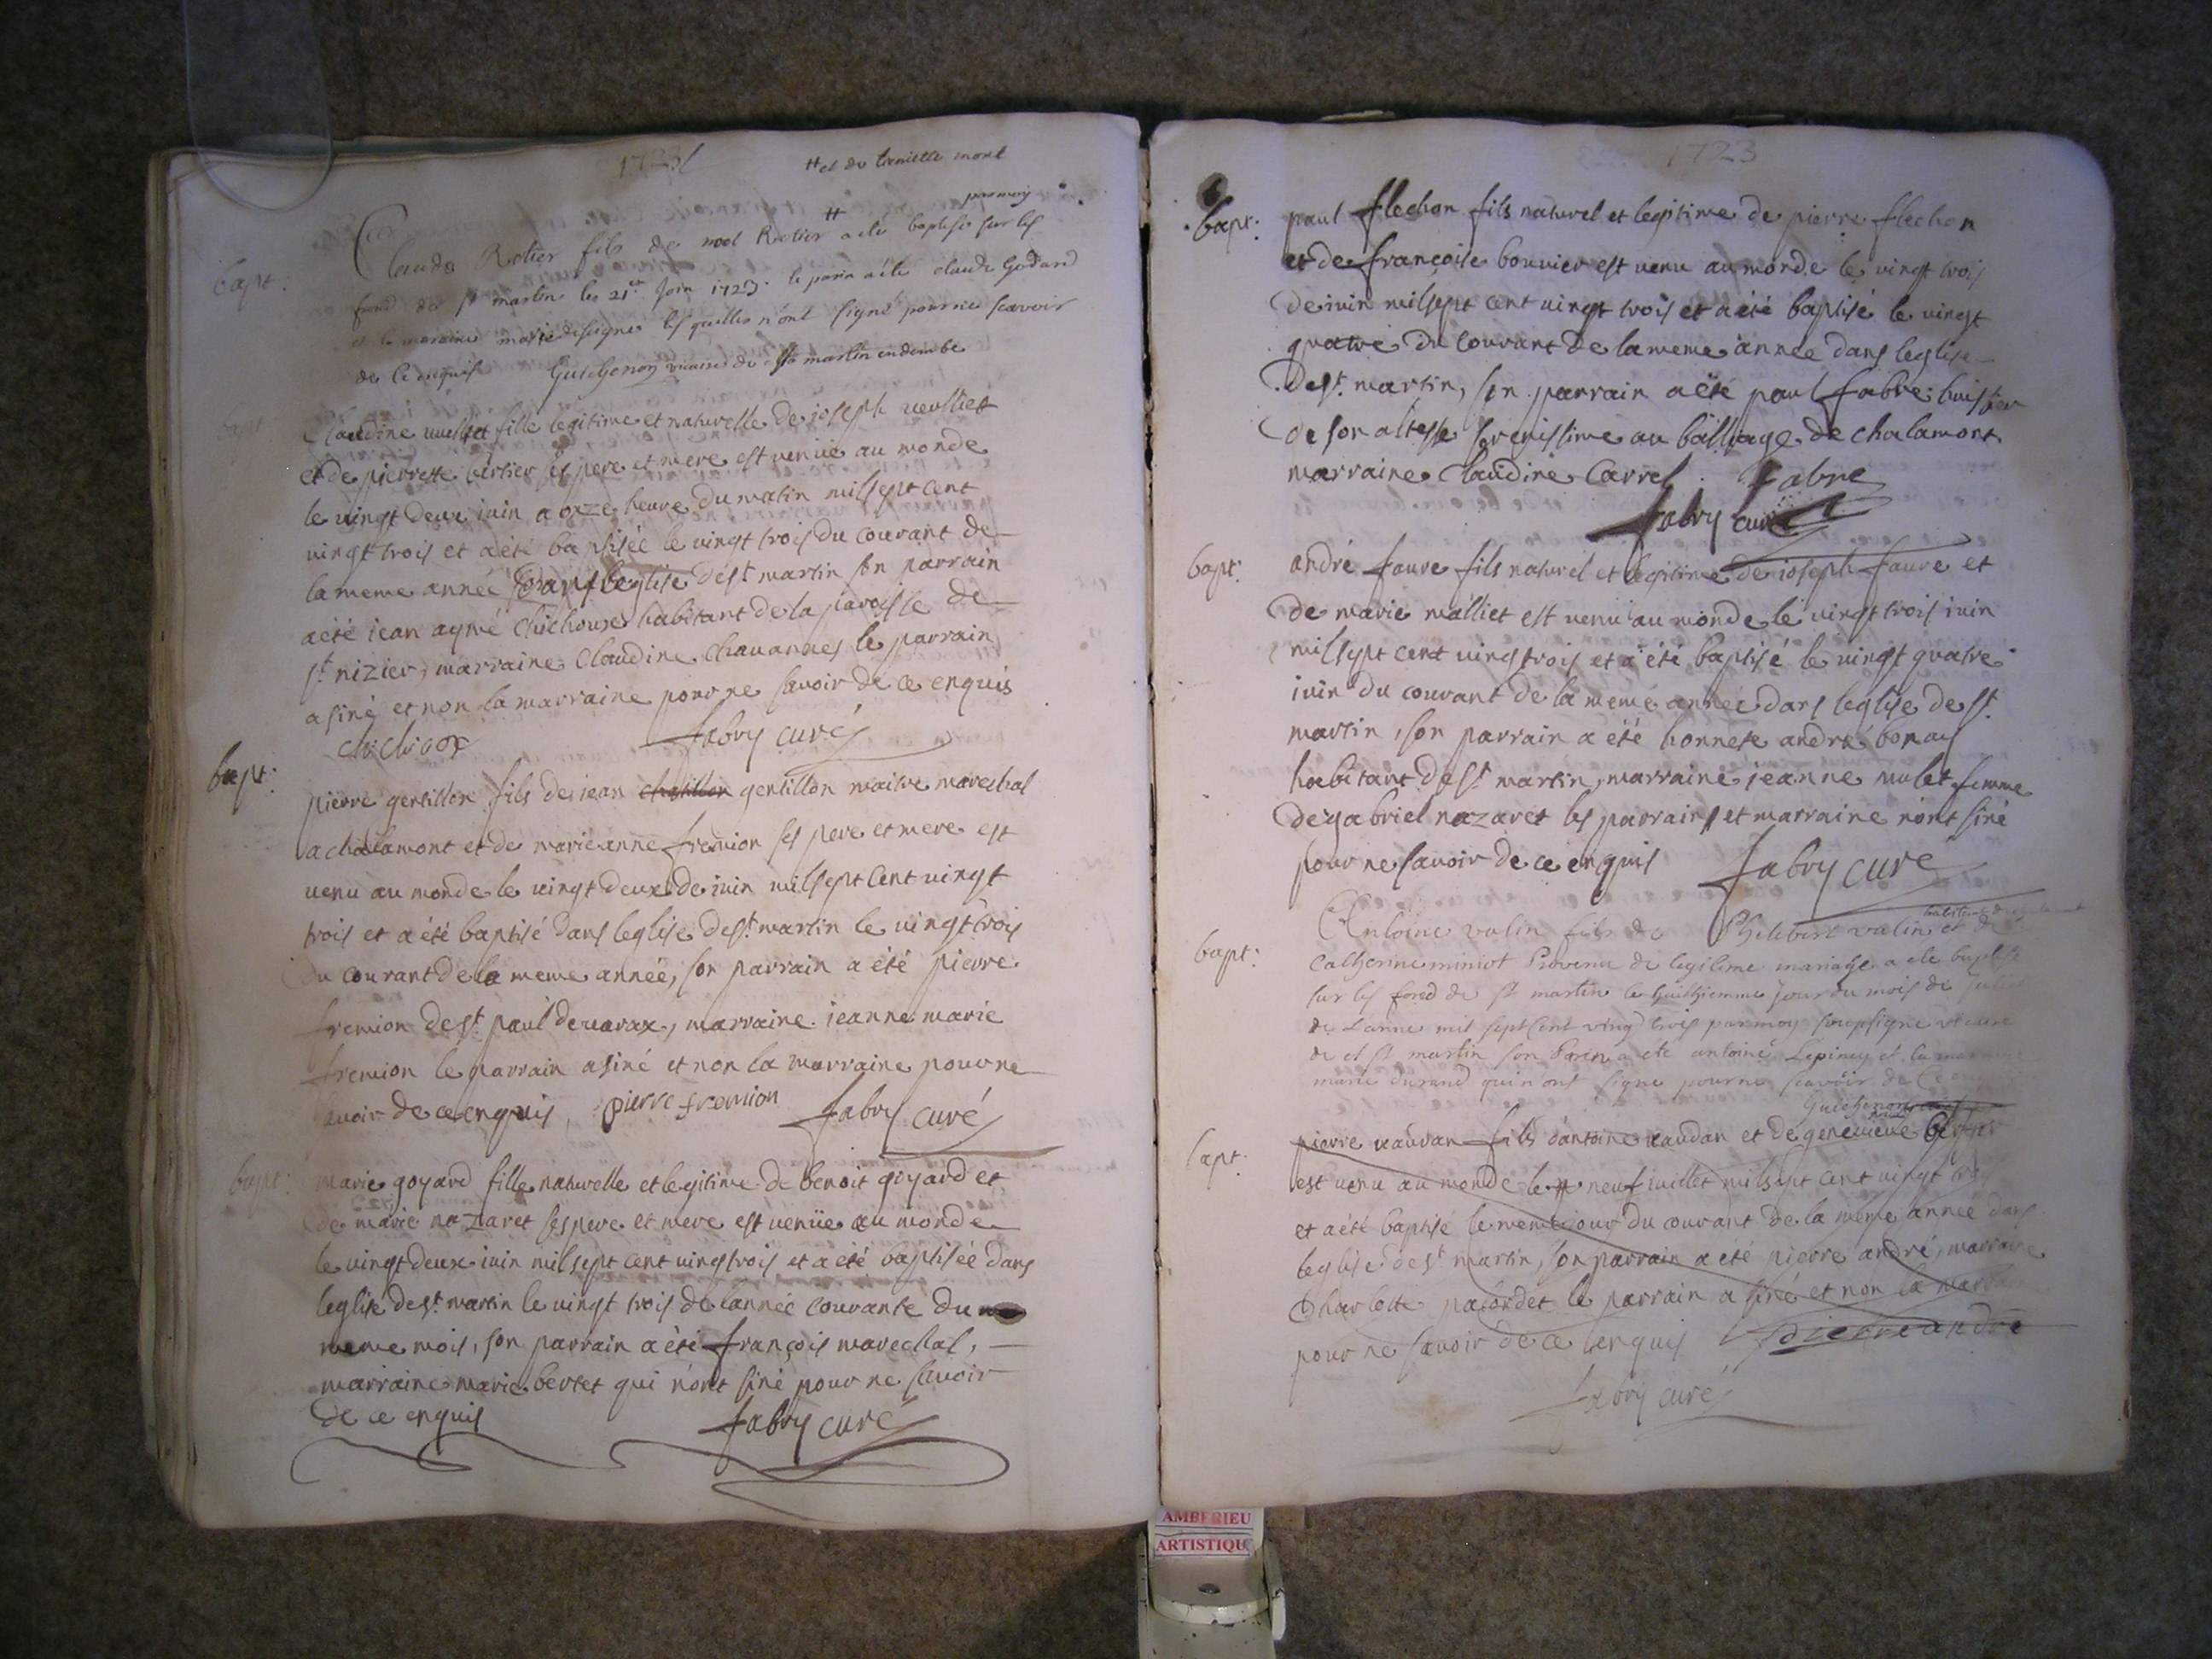 1723
++ et de tienette mont
par moy
bapt:
Claude Rotier fils de noel Rotier ++ a ete baptise sur les
fond de st martin le 21e Join 1723. le parin a ete claude Godard
et la maraine marie les quelles n'ont signé pour ne scavoir
de ce enquis Guichenon vicaire de st martin
bapt
claudine vulliet fille legitime et naturelle de ioseph veulliet
et de pierrette bertier ses pere et mere est venüe au monde
le vingt deux iuin a onze heure du matin mil sept cent
vingt trois et a été baptisée le vingt trois du courant de
la meme année dans leglise de st martin son parrain
a été iean aymé chichoux habitant de la paroisse de
st nizier, marraine claudine chavannes le parrain
a siné et non la marraine pour ne savoir de ce enquis
chichoox fabry curé
bapt:
pierre gentillon fils de iean chatillon gentillon maitre marechal
a chalamont et de marie anne fremion ses pere et mere est
venu au monde le vingt deux de iuin mil sept cent vingt
trois et a été baptisé dans leglise de st martin le vingt trois
du courant de la meme année, son parrain a été pierre
fremion de st paul de varax, marraine ieanne marie
fremion le parrain a siné et non la marraine pour ne
savoir de ce enquis, pierre fremion fabry curé
bapt:
marie goyard fille naturelle et legitime de benoit goyard et
de marie nazaret ses pere et mere est venüe au monde
le vingt deux iuin mil sept cent vingtrois et a été baptisée dans
leglise de st martin le vingt trois de lannée courante du
meme mois, son parrain a été françois marechal,
marraine marie bertet qui n'ont siné pour ne savoir
de ce enquis fabry curé
1723
bapt:
paul flechon fils naturel et legitime de pierre flechon
et de françoise bouvier est venu au monde le vingt trois
de iuin mil sept cent vingt trois et a été baptisé le vingt
quatre du courant de la meme année dans leglise
de st martin, son parrain a été paul fabre huissier
de son altesse serenissime au balliage de chalamont
marraine claudine Carrel. fabre
fabry curé
bapt:
andré faure fils naturel et legitime de ioseph faure et
de marie malliet est venu au monde le vingt trois iuin
mil sept cent vingtrois et a été baptisé le vingt quatre
iuin du courant de la meme année dans leglise de st
martin, son parrain a été honnete andré bonay
habitant de st martin, marraine ieanne mulet femme
de gabriel nazaret les parrains et marraine n'ont siné
pour ne savoir de ce enquis fabry curé
habitant de
bapt:
Antoine valin fils de Philibert valin et de
Catherine miniot Provenu de legitime mariage a ete baptise
sur les fond de st martin le huitiemme jour du mois de
de Lanne mil sept cent vingt trois par moy soupsigne vicaire
de et st martin son Parin a ete antoine Lepiney et la
marie durand qui n'ont signe pour ne scavoir de
Guichenon
bapt:
pierre vaudan fils dantoine vaudan et de genevieve
est venu au monde le neuf iuillet mil sept cent vingt
et a été baptisé le meme iour du courant de la meme année dans
leglise de st martin, son parrain a été pierre andré, marraine
Charlotte pacordet le parrain a siné et non la
pour ne savoir de ce enquis pierre andre
fabry curé
AMBERIEU
ARTISTIQU